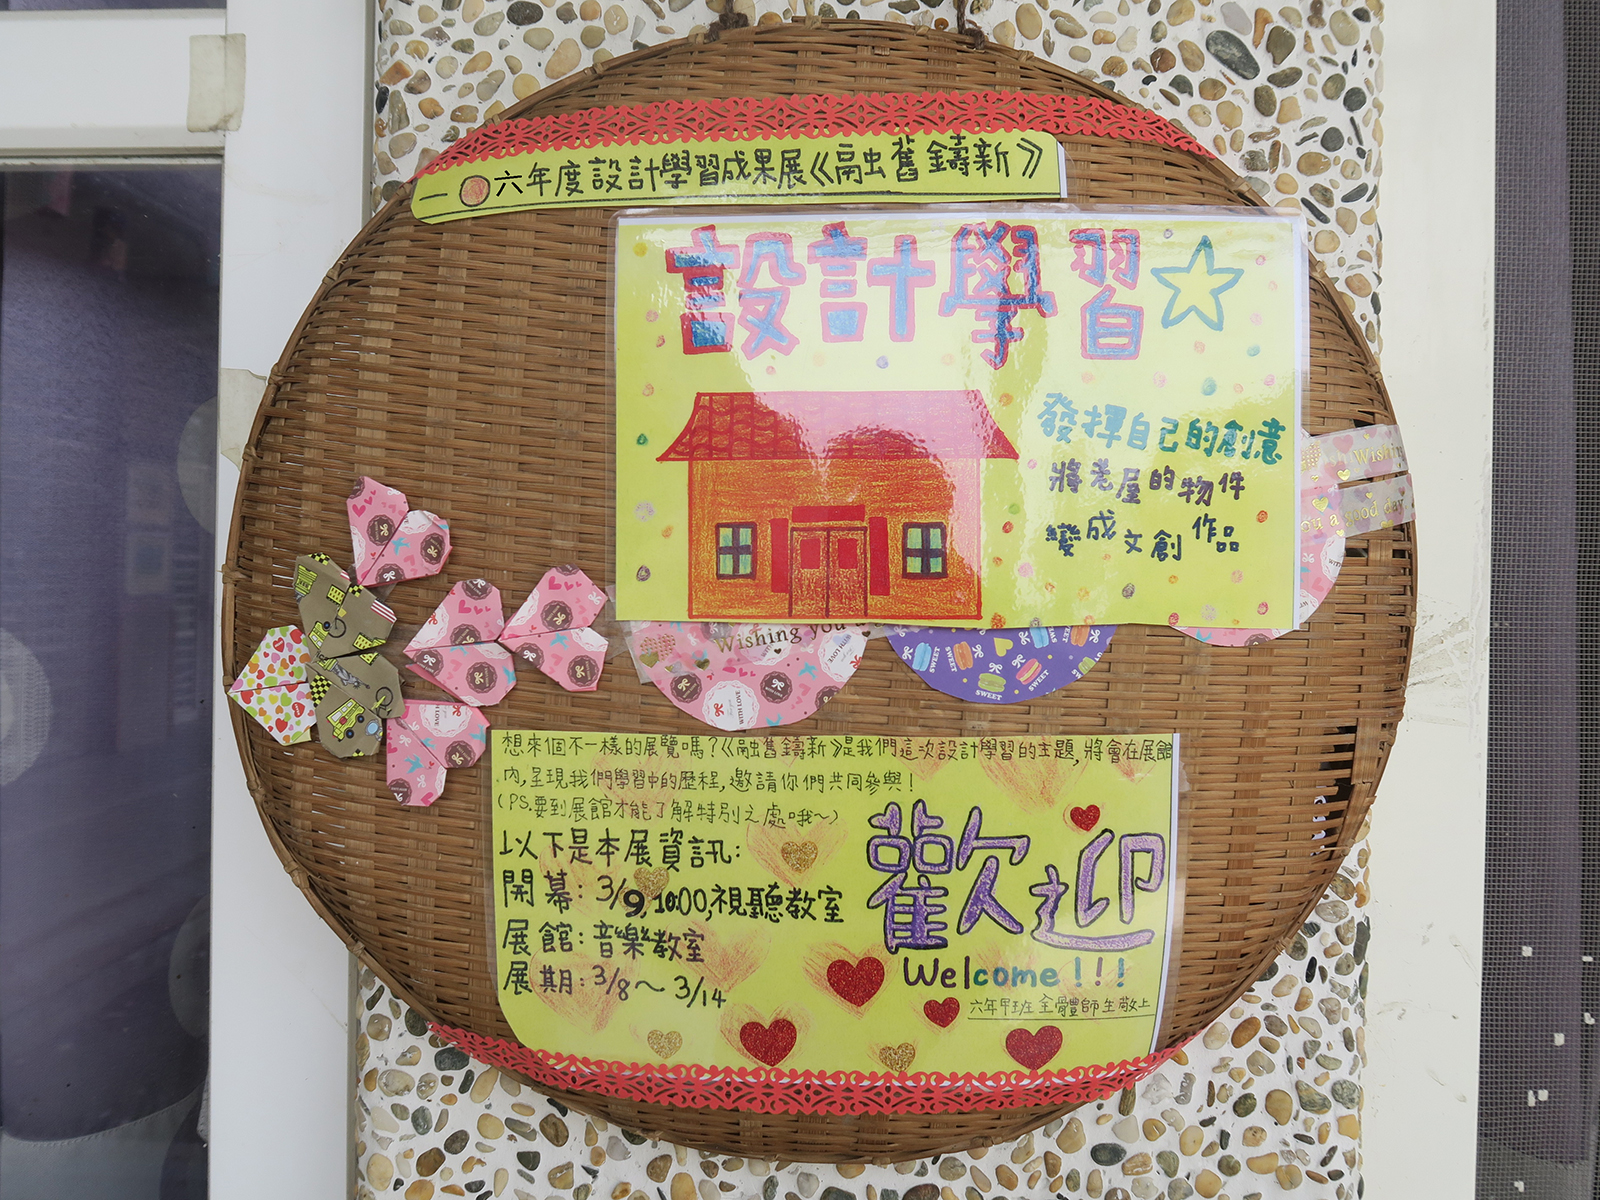 一〇六年度設計學習成果展《融舊鑄新》
設計學習
發揮自己的創意
將老屋的物件
變成文創作品
Wishing you
Wishing
you a good day
SWEET
SWEET
SWEET
想來個不一樣的展覽嗎?《融舊鑄新》是我們這次設計學習的主題,將會在展館
內,呈現我們學習中的歷程,邀請你們共同參與!
(PS.要到展館才能了解特別之處哦~)
以下是本展資訊:
開幕:3/9,10:00,視聽教室
展館:音樂教室
展期:3/8~3/14
歡迎
Welcome!!!
六年甲班全體師生敬上